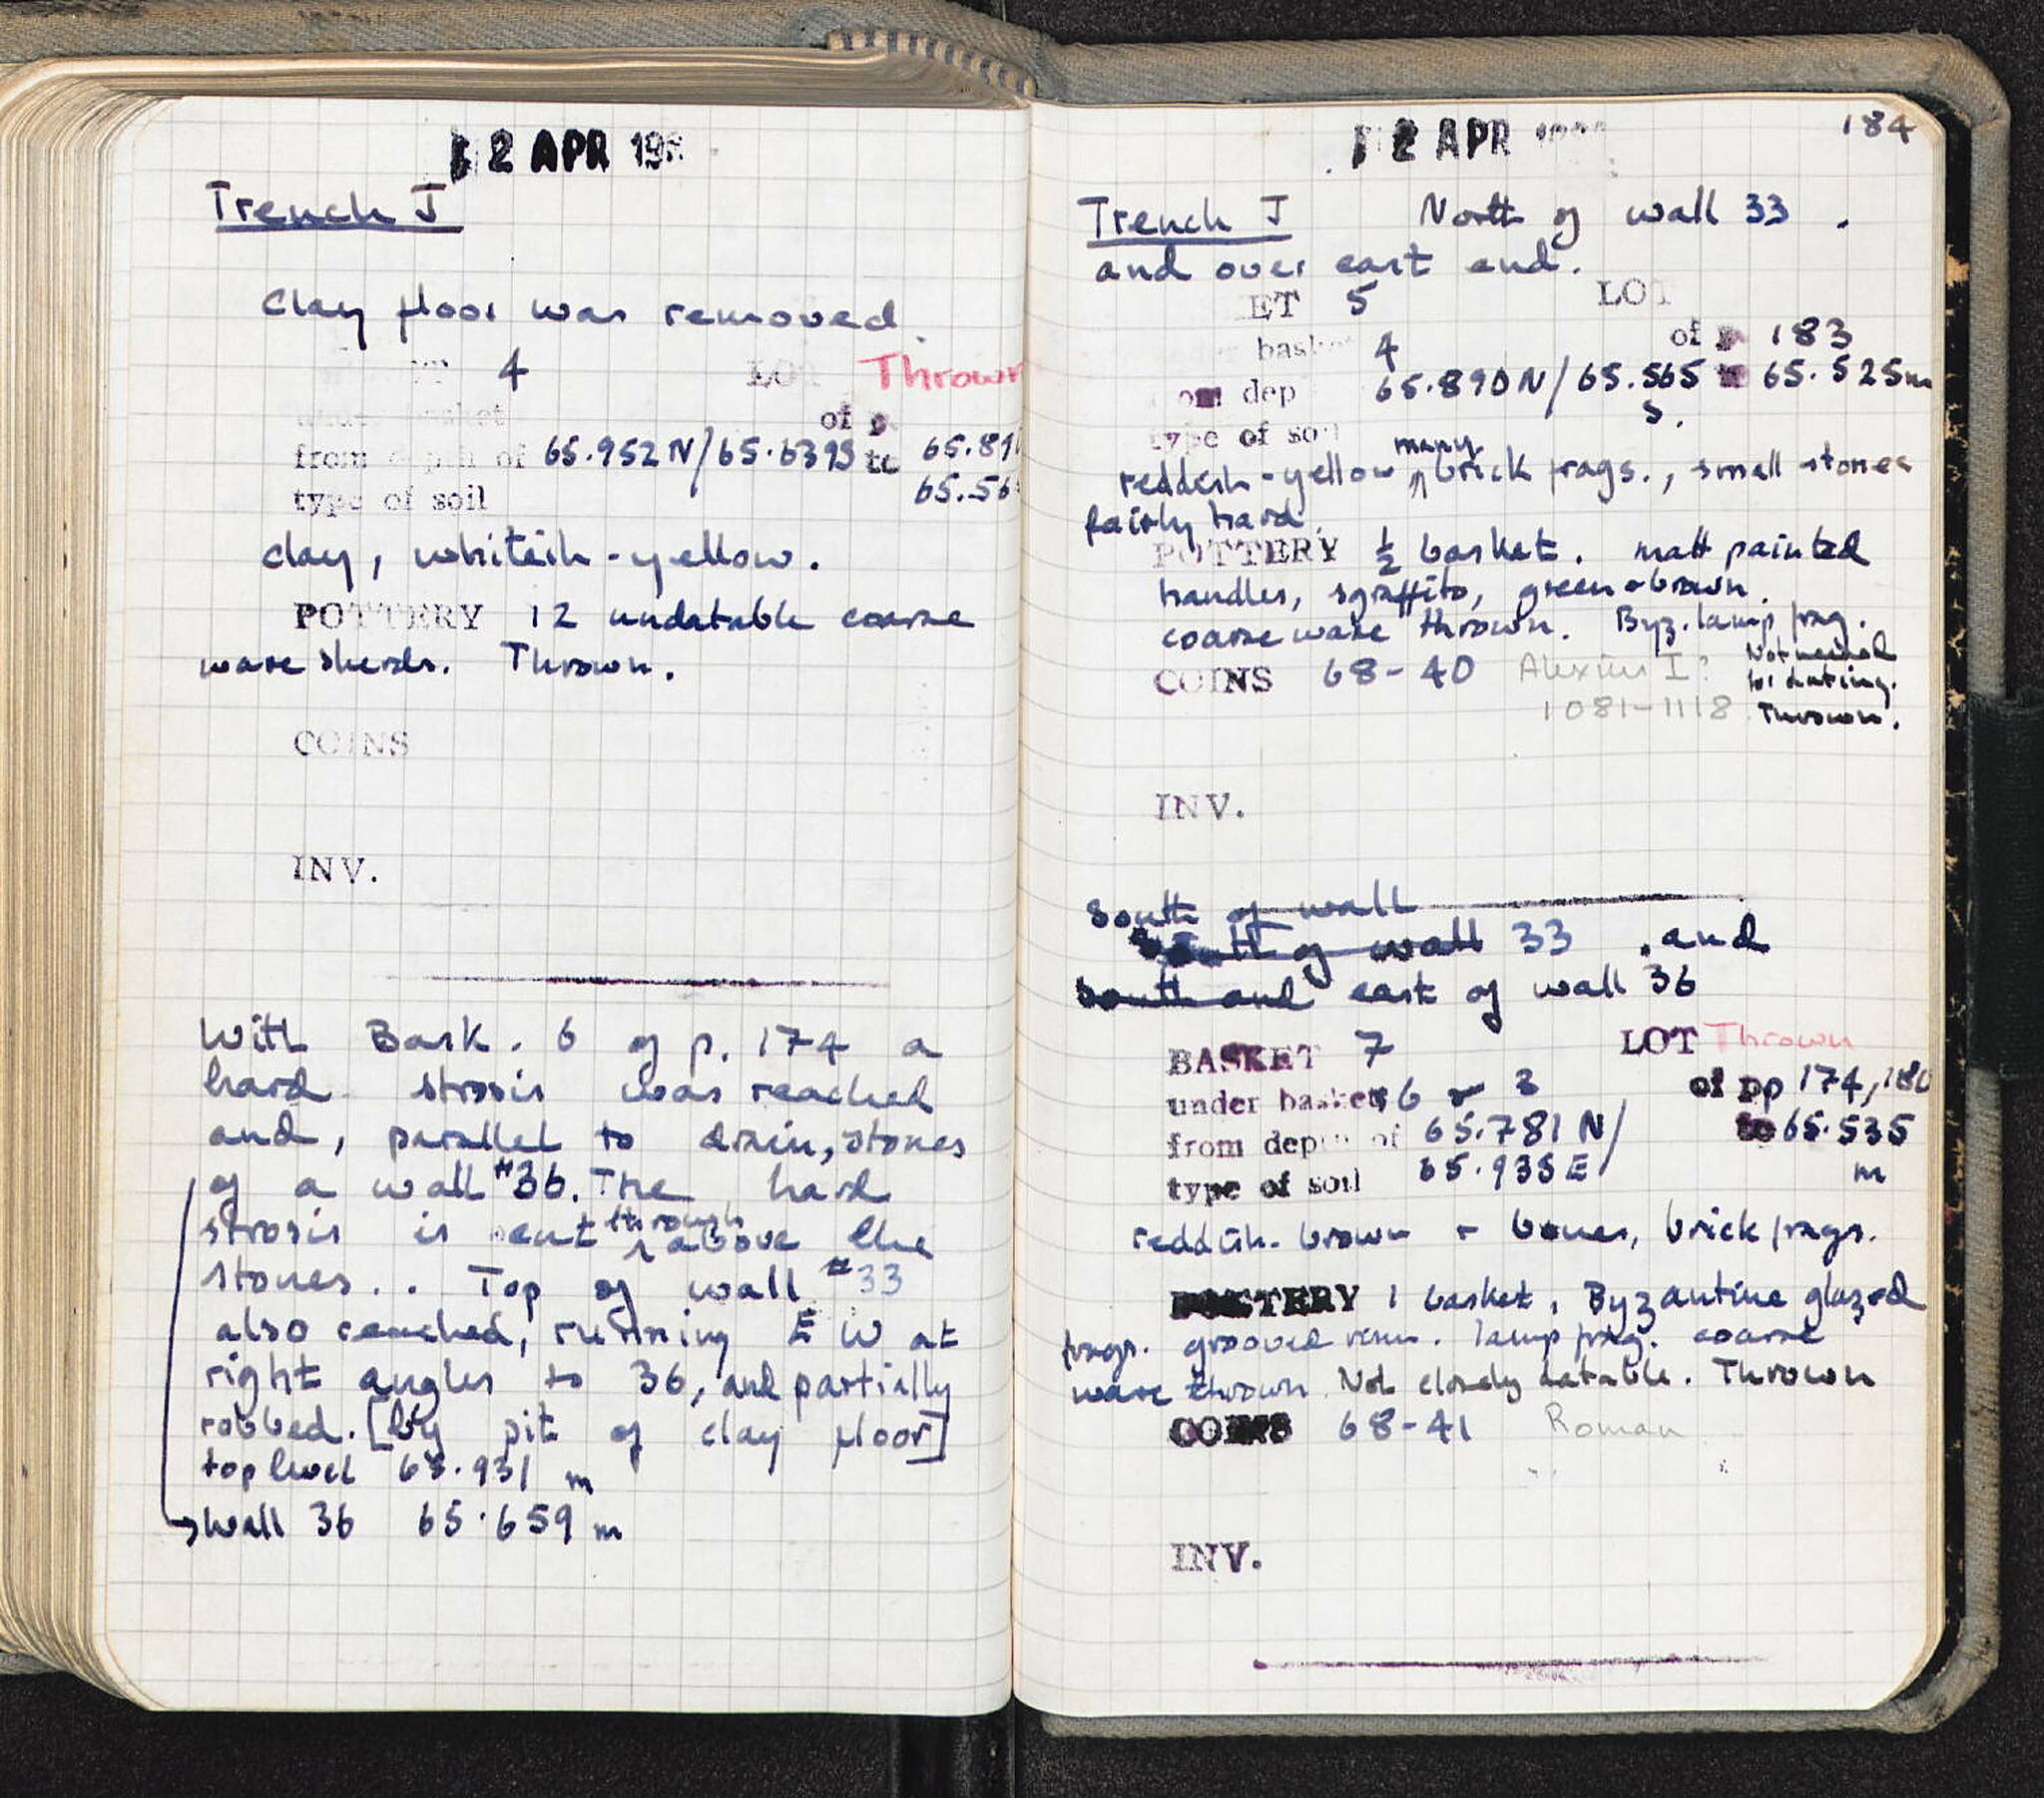 2 APR 19
Trench J
Clay floor was removed
4 LOT Thrown
basket of p.
from depth of 65.952 N/65.639S to 65.89
65.56
type of soil
clay, whiteish-yellow.
POTTERY 12 undatable coarse
ware sherds. Thrown.
COINS
INV.
With Bask. 6 of p. 174 a
hard strosis was reached
and, parallel to drain, stones
of a wall #36. The hard
strosis is cut through above the
stones.. Top of wall #33
also reached, running E W at
right angles to 36, and partially
robbed. [by pit of clay floor]
top level 65.931 m
→ wall 36 65.659 m
2 APR
184
Trench J North of wall 33.
and over east end.
ET 5 LOT
basket 4 of p 183
from dep 65.890N/65.565 to 65.525m
S.
type of soil
reddish-yellow many brick frags., small stones
fairly hard.
POTTERY ½ basket. matt painted
handles, sgraffito, green + brown.
coarse ware thrown. Byz. lamp frag.
COINS 68-40 Alexius I? 1081-1118
Not needed
for dating.
Thrown.
INV.
South of wall
South of wall 33 . and
south and east of wall 36
BASKET 7 LOT Thrown
under baskets 6 + 3 of pp 174, 180
from depth of 65.781 N/ to 65.535
65.935E/ m
type of soil
reddish-brown + bones, brick frags.
POTTERY 1 basket, Byzantine glazed
frags. grooved rims. lamp frag. coarse
ware thrown. Not closely datable. Thrown
COINS 68-41 Roman
INV.